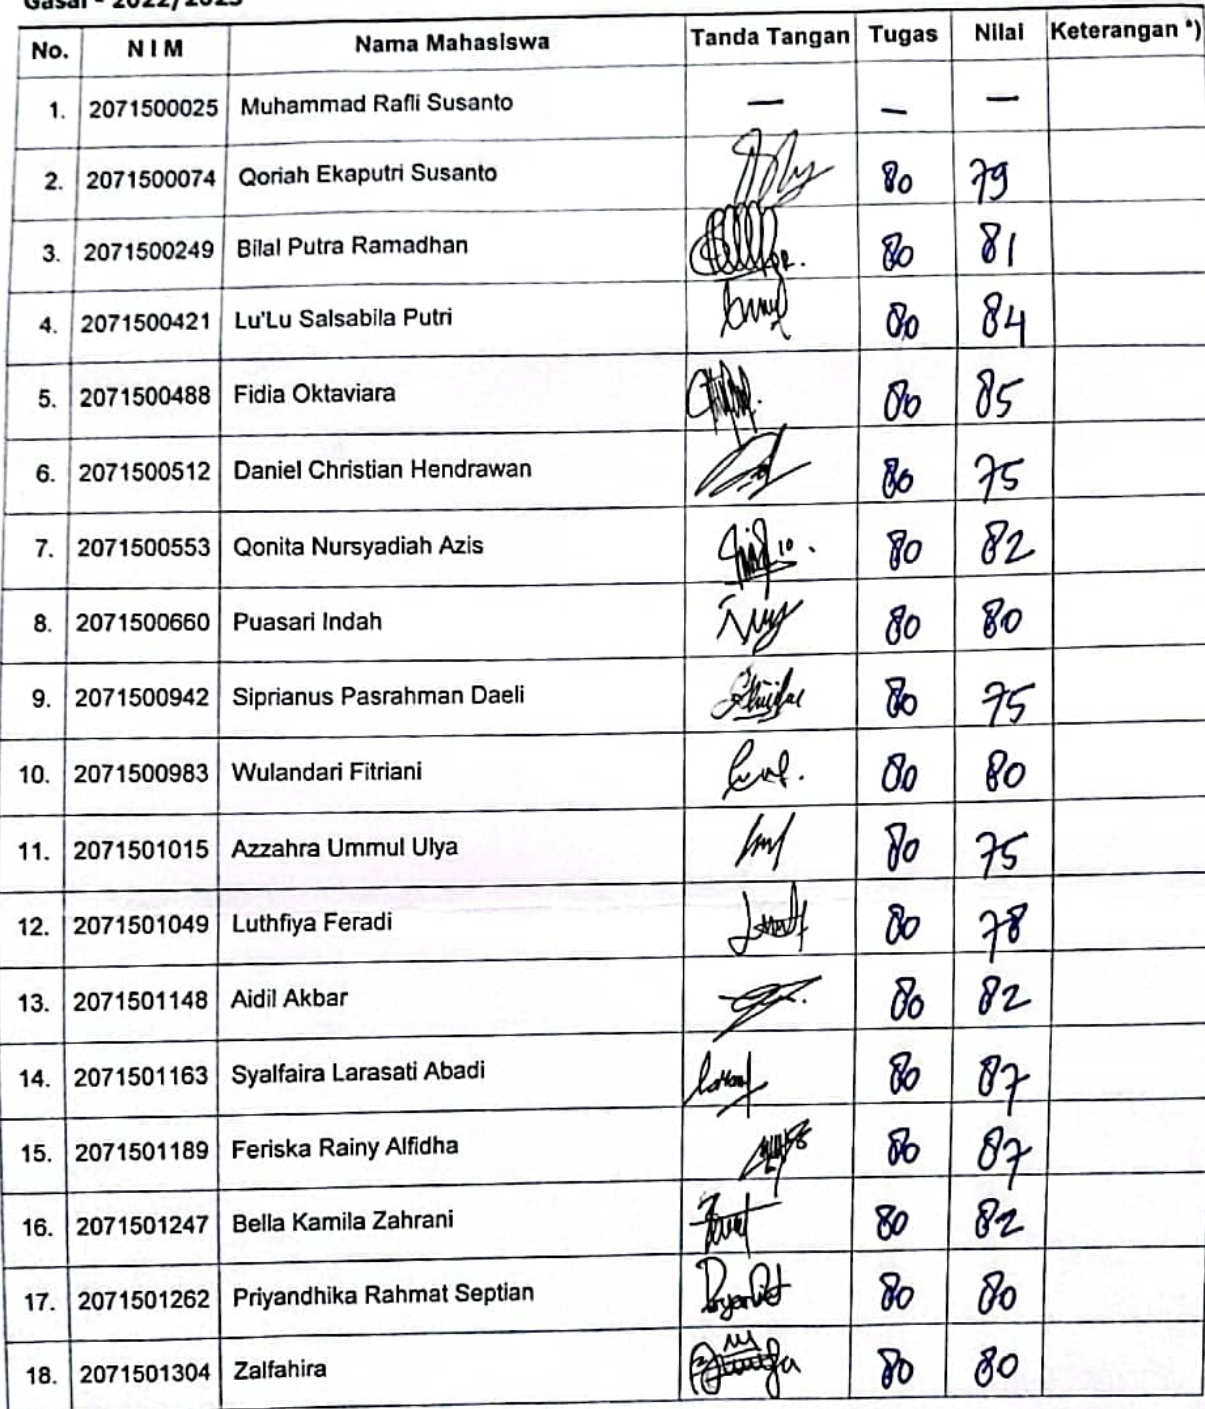 Gasal - 2022/2023
No. NIM Nama Mahasiswa Tanda Tangan Tugas Nilai Keterangan *)
1. 2071500025 Muhammad Rafli Susanto — — —
2. 2071500074 Qoriah Ekaputri Susanto 80 79
3. 2071500249 Bilal Putra Ramadhan 80 81
4. 2071500421 Lu'Lu Salsabila Putri 80 84
5. 2071500488 Fidia Oktaviara 80 85
6. 2071500512 Daniel Christian Hendrawan 80 75
7. 2071500553 Qonita Nursyadiah Azis 80 82
8. 2071500660 Puasari Indah 80 80
9. 2071500942 Siprianus Pasrahman Daeli 80 75
10. 2071500983 Wulandari Fitriani 80 80
11. 2071501015 Azzahra Ummul Ulya 80 75
12. 2071501049 Luthfiya Feradi 80 78
13. 2071501148 Aidil Akbar 80 82
14. 2071501163 Syalfaira Larasati Abadi 80 87
15. 2071501189 Feriska Rainy Alfidha 80 87
16. 2071501247 Bella Kamila Zahrani 80 82
17. 2071501262 Priyandhika Rahmat Septian 80 80
18. 2071501304 Zalfahira 80 80